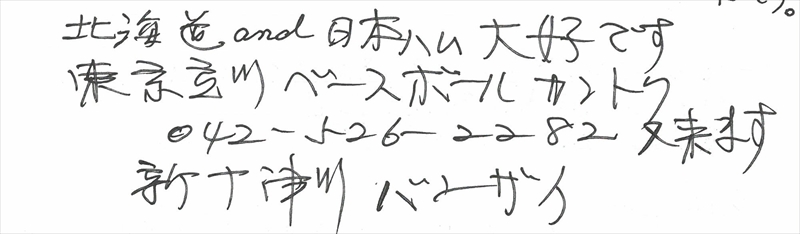 北海道and日本ハム大好です
東京立川ベースボールカントク
042-526-2282 又来ます
新十津川バンザイ